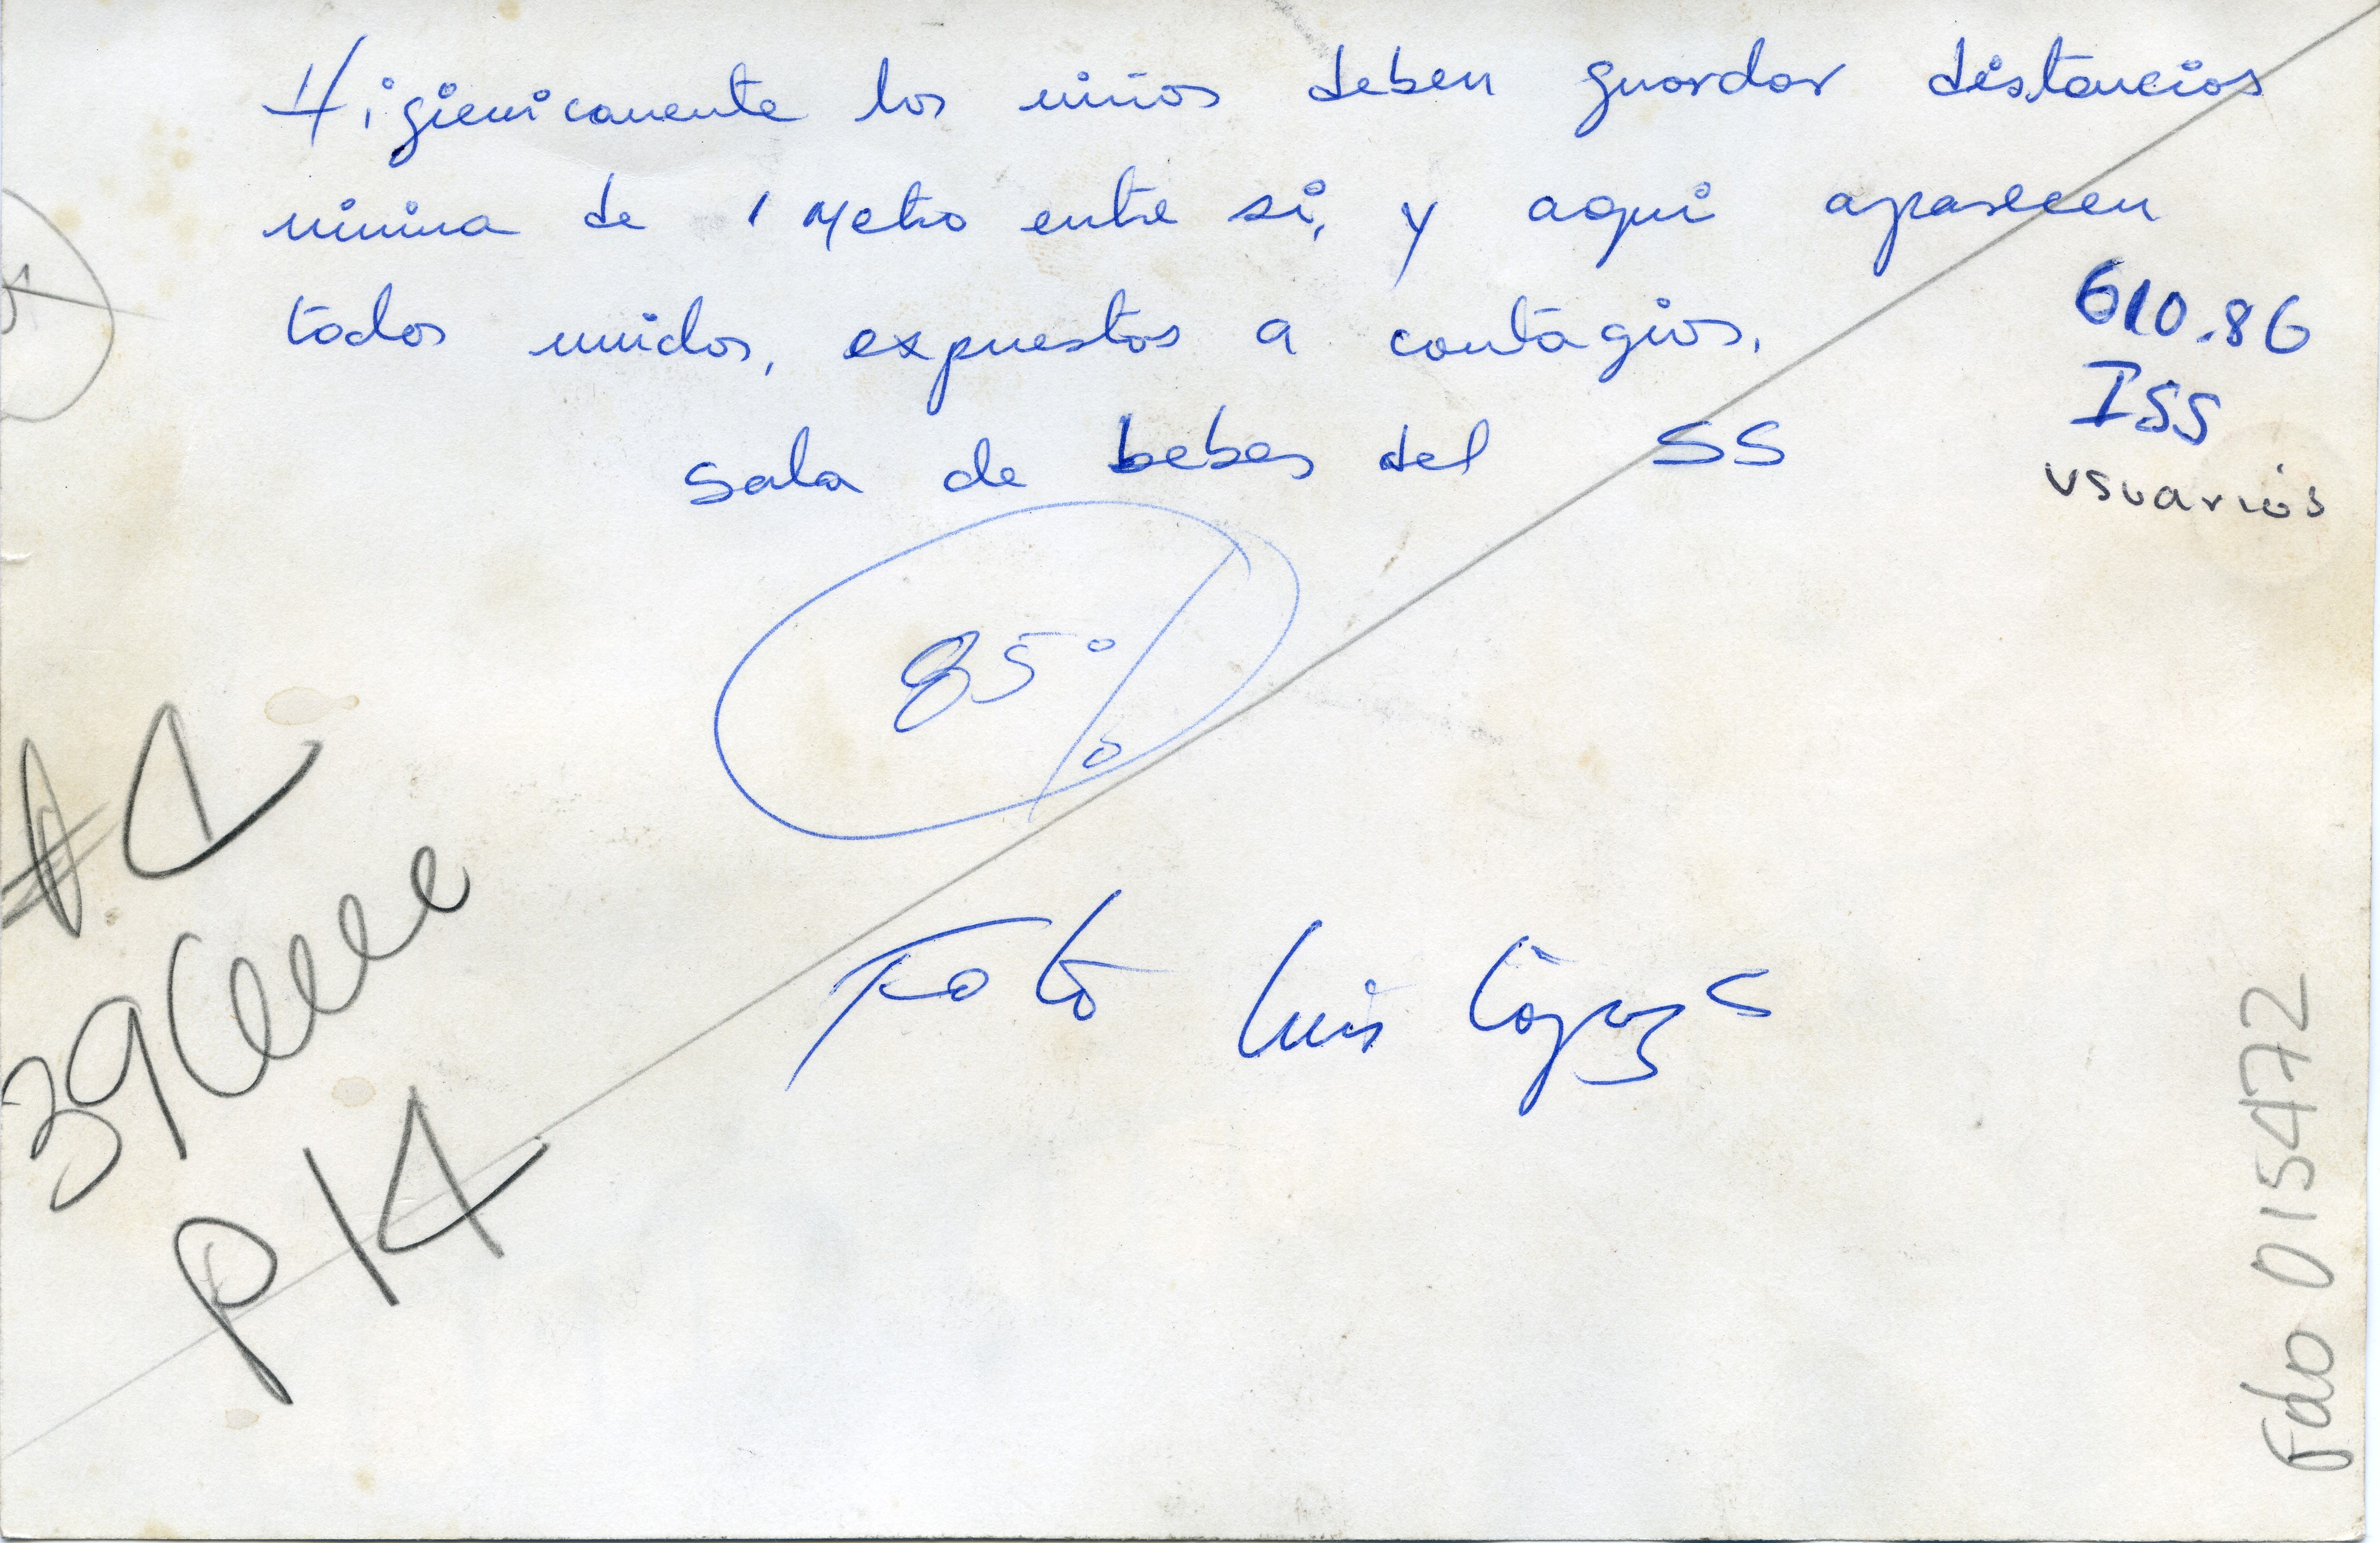 Higienicamente los niños deben guardar distancias
minima de 1 Metro entre si, y aqui aparecen
todos unidos, expuestos a contagios.
sala de bebes del SS
610.86
ISS
usuarios
85%
Foto Luis López
#4
39
P 14
Fdo 015472